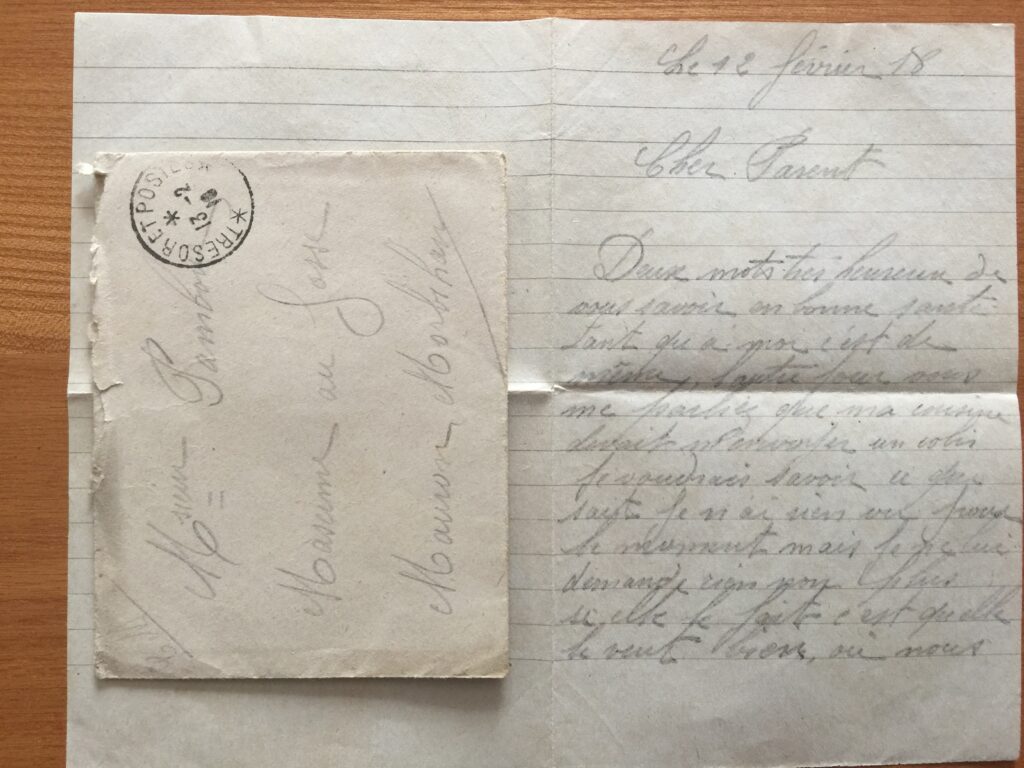 TRESOR ET POSTES
13 -2
Msieur Pambou
Maxime au Gosse
Mauron, Morbihan
Le 12 février 18
Cher Parent
Deux mots très heureux de
vous savoir en bonne santé
tant qu'a moi c'est de
même, l'autre jour vous
me parliez que ma cousine
devait m'envoyer un colis
je voudrais savoir ce que
sait je n ai rien vu pour
le moment mais je ne lui
demande rien non plus
si elle le fait c'est quelle
le veut bien, où nous